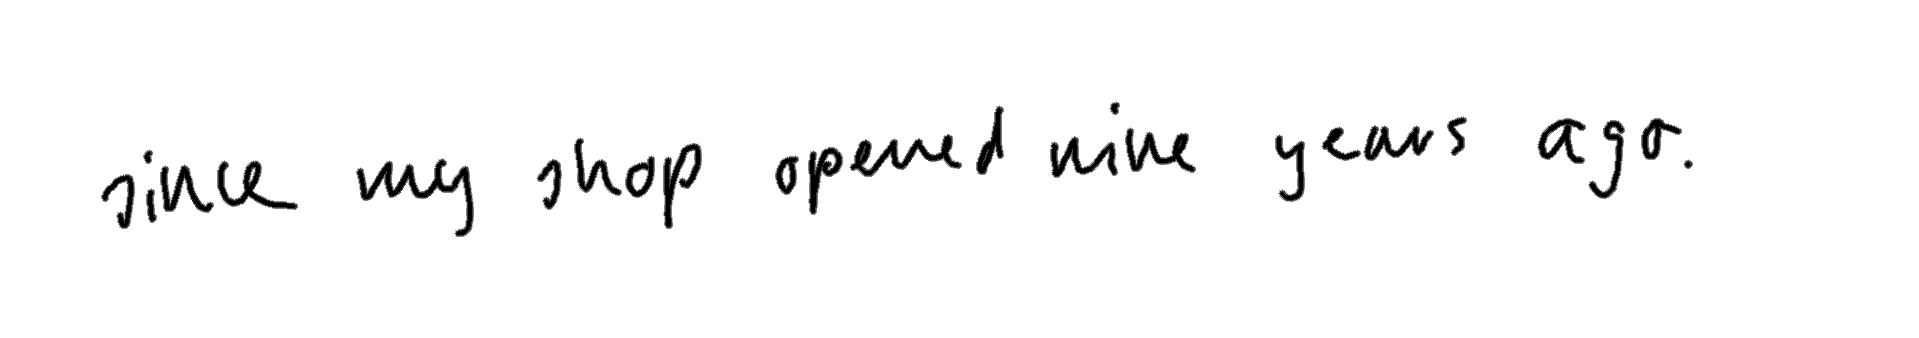 since my shop opened nine years ago.